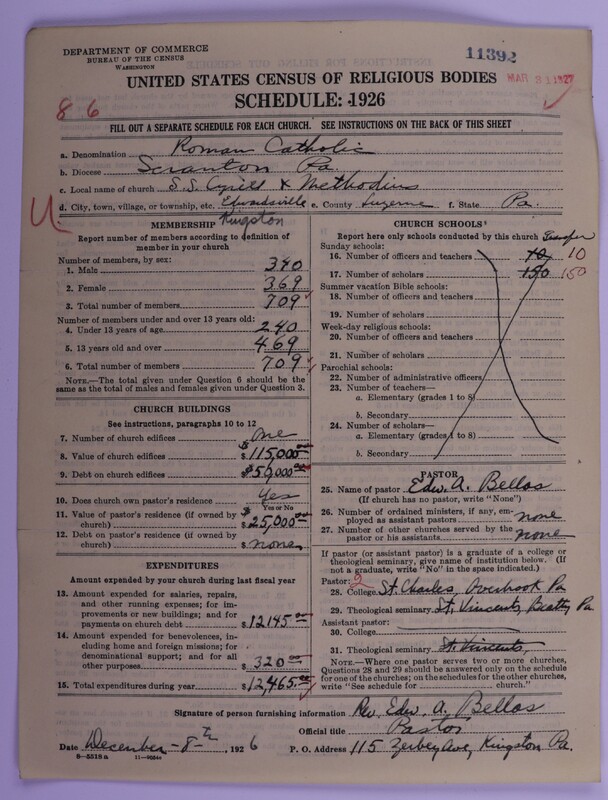 DEPARTMENT OF COMMERCE
BUREAU OF THE CENSUS
WASHINGTON
11392
MAR 31 1927
UNITED STATES CENSUS OF RELIGIOUS BODIES
SCHEDULE: 1926
8 6
FILL OUT A SEPARATE SCHEDULE FOR EACH CHURCH. SEE INSTRUCTIONS ON THE BACK OF THIS SHEET
a. Denomination Roman Catholic
b. Diocese Scranton Pa.
c. Local name of church S.S. Cyrill & Methodius
d. City, town, village, or township, etc. Edwardsville e. County Luzerne f. State Pa.
Kingston
MEMBERSHIP
Report number of members according to definition of
member in your church
Number of members, by sex:
1. Male 340
2. Female 369
3. Total number of members 709
Number of members under and over 13 years old:
4. Under 13 years of age 240
5. 13 years old and over 469
6. Total number of members 709
NOTE.—The total given under Question 6 should be the
same as the total of males and females given under Question 3.
CHURCH BUILDINGS
See instructions, paragraphs 10 to 12
7. Number of church edifices One
8. Value of church edifices $115,000.00
9. Debt on church edifices $50,000.00
10. Does church own pastor's residence Yes
Yes or No
11. Value of pastor's residence (if owned by
church) $25,000.00
12. Debt on pastor's residence (if owned by
church) $ none
EXPENDITURES
Amount expended by your church during last fiscal year
13. Amount expended for salaries, repairs,
and other running expenses; for im-
provements or new buildings; and for
payments on church debt $12145.00
14. Amount expended for benevolences, in-
cluding home and foreign missions; for
denominational support; and for all
other purposes $320.00
15. Total expenditures during year $12,465.00
CHURCH SCHOOLS
Report here only schools conducted by this church
Sunday schools:
16. Number of officers and teachers 10 10
17. Number of scholars 150 150
Summer vacation Bible schools:
18. Number of officers and teachers
19. Number of scholars
Week-day religious schools:
20. Number of officers and teachers
21. Number of scholars
Parochial schools:
22. Number of administrative officers
23. Number of teachers—
a. Elementary (grades 1 to 8)
b. Secondary
24. Number of scholars—
a. Elementary (grades 1 to 8)
b. Secondary
PASTOR
25. Name of pastor Edw. A. Bellos
(If church has no pastor, write "None")
26. Number of ordained ministers, if any, em-
ployed as assistant pastors none
27. Number of other churches served by the
pastor or his assistants none
If pastor (or assistant pastor) is a graduate of a college or
theological seminary, give name of institution below. (If
not a graduate, write "No" in the space indicated.)
Pastor: 2
28. College St. Charles, Overbrook Pa
29. Theological seminary St. Vincents, Beatty Pa
Assistant pastor:
30. College
31. Theological seminary St. Vincents,
NOTE.—Where one pastor serves two or more churches,
Questions 28 and 29 should be answered only on the schedule
for one of the churches; on the schedules for the other churches,
write "See schedule for church."
Signature of person furnishing information Rev. Edw. A. Bellos
Official title Pastor
Date December-8th, 1926 P. O. Address 115 Zerbey Ave, Kingston Pa.
8—5518 a